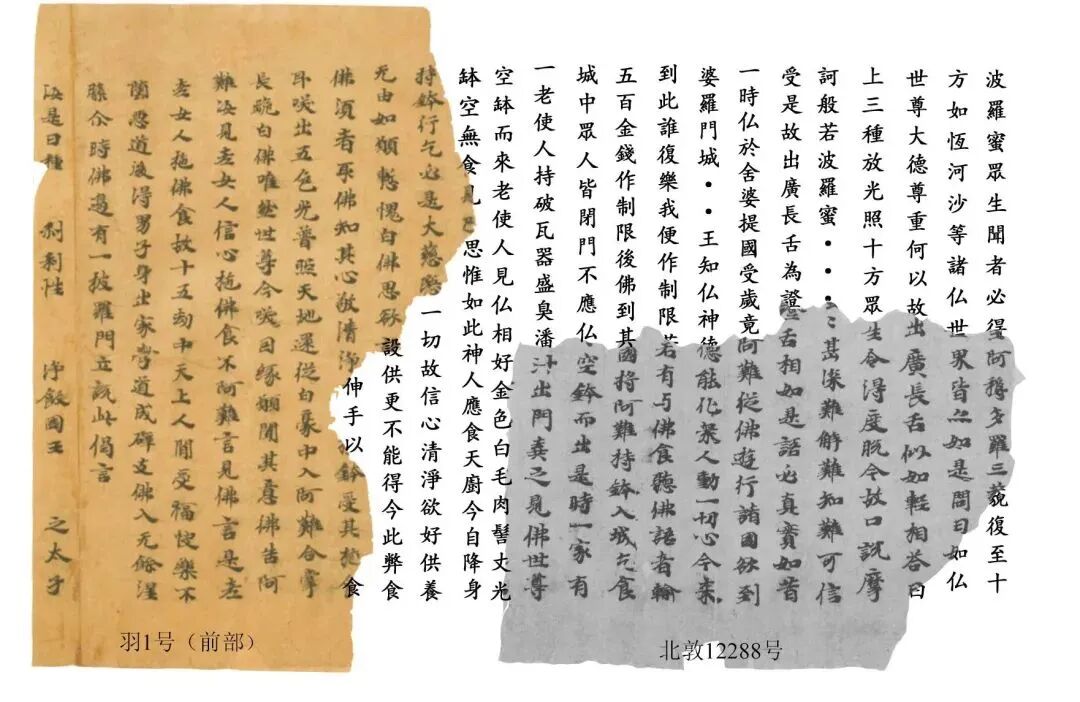 波羅蜜眾生聞者必得阿耨多羅三藐復至十
方如恆河沙等諸仏世界皆亦如是問曰如仏
世尊大德尊重何以故出廣長舌似如輕相答曰
上三種放光照十方眾生令得度脫今故口說摩
訶般若波羅蜜・・・甚深難解難知難可信
受是故出廣長舌為證舌相如是語必真實如昔
一時仏於舍婆提國受歲竟阿難從佛遊行諸國欲到
婆羅門城・・王知仏神德能化眾人動一切心今來
到此誰復樂我便作制限若有与佛食聽佛語者輸
五百金錢作制限後佛到其國將阿難持鉢入城乞食
城中眾人皆閉門不應仏空鉢而出是時一家有
一老使人持破瓦器盛臭潘汁出門棄之見佛世尊
空鉢而來老使人見仏相好金色白毛肉髻丈光
缽空無食見已思惟如此神人應食天廚今自降身
持鉢行乞必是大慈愍一切故信心清淨欲好供養
无由如願慙愧白佛思欲設供更不能得今此弊食
佛須者取佛知其心敬清淨伸手以鉢受其施食
即咲出五色光普照天地還從白豪中入阿難合掌
長跪白佛唯然世尊今咲因緣願聞其意佛告阿
難汝見老女人信心施佛食不阿難言見佛言是老
老女人施佛食故十五劫中天上人間受福快樂不
墮惡道後得男子身出家學道成辟支佛入无餘涅
槃尒時佛邊有一披羅門立說此偈言
汝是日種 剎利性 淨飯國王 之太子
羽1号（前部）
北敦12288号